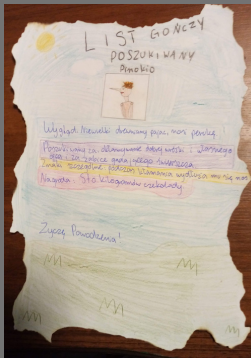 LIST GOŃCZY
POSZUKIWANY
Pinokio
Wygląd: Niewielki drewniany pajac, nosi perukę
Poszukiwany za
i za zabicie gadającego świerszcza
Znaki szczególne: podczas kłamania wydłuża mu się nos
Nagroda: Sto kilogramów czekolady
Życzę Powodzenia!